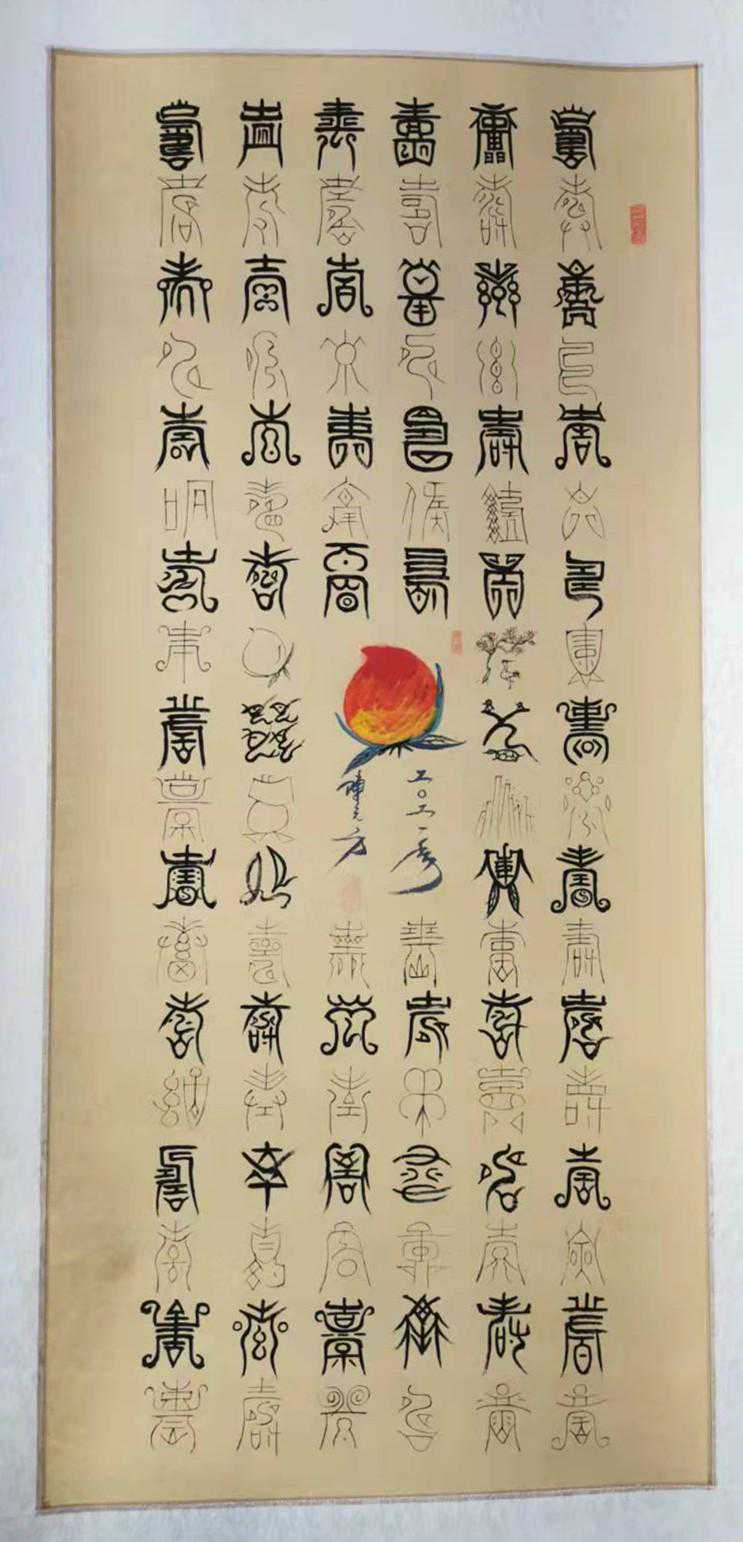 壽壽壽壽壽壽壽壽壽壽壽壽壽壽壽壽壽壽
壽壽壽壽壽壽壽壽壽壽壽壽壽壽壽壽壽壽
壽壽壽壽壽壽壽
二〇二一
壽壽壽壽壽壽壽
壽壽壽壽壽壽壽
壽壽壽壽壽壽壽
壽壽壽壽壽壽壽壽壽壽壽壽壽壽壽壽壽壽
壽壽壽壽壽壽壽壽壽壽壽壽壽壽壽壽壽壽